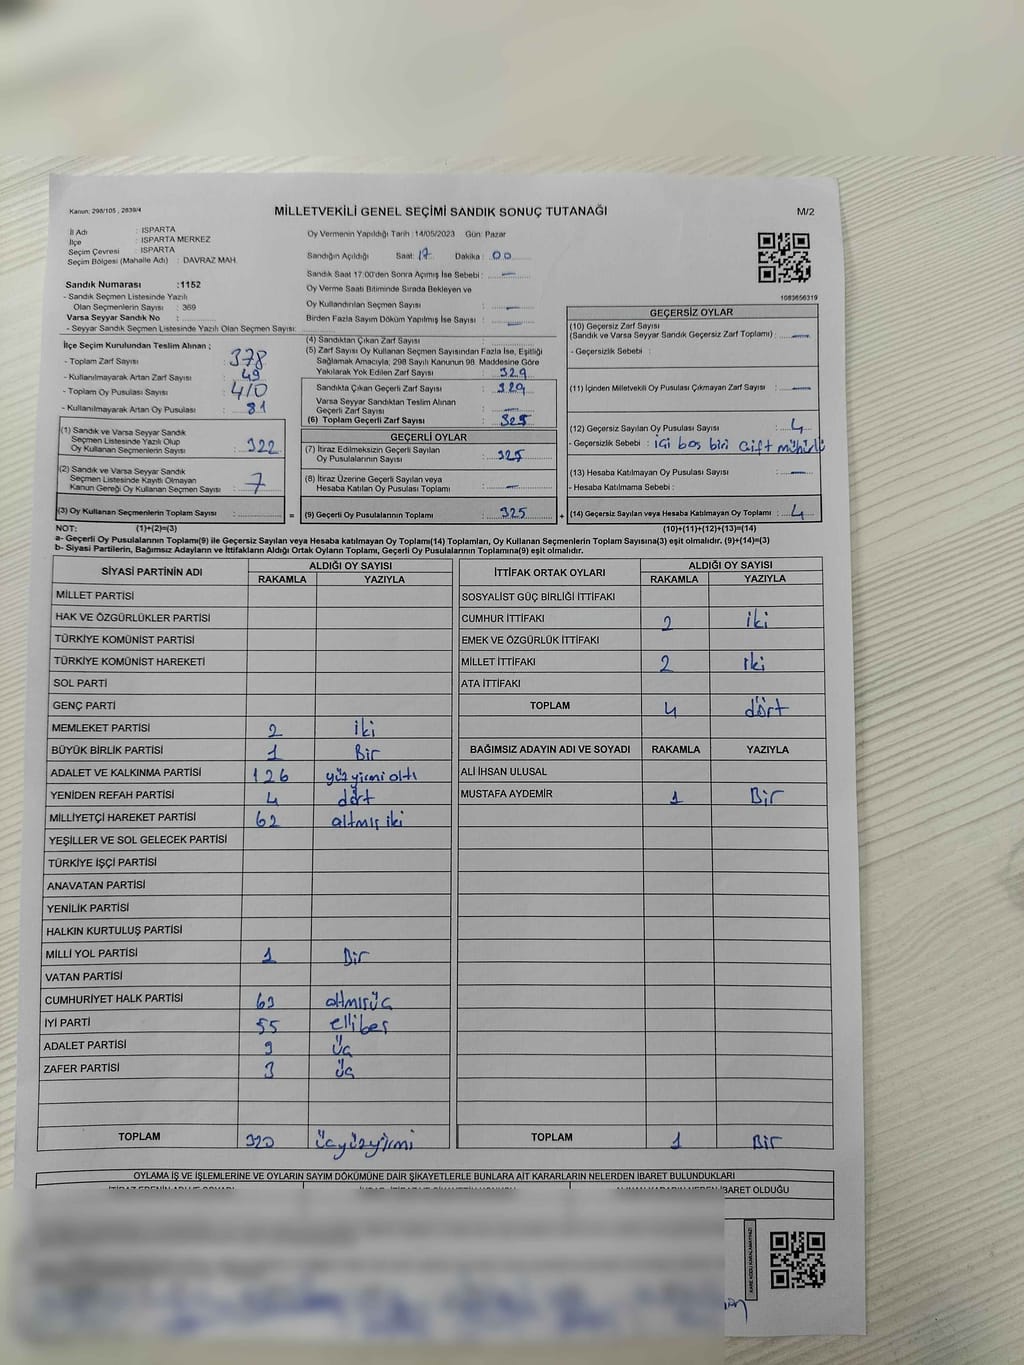 Kanun: 298/105 , 2839/4
MİLLETVEKİLİ GENEL SEÇİMİ SANDIK SONUÇ TUTANAĞI
M/2
İl Adı : ISPARTA
İlçe : ISPARTA MERKEZ
Seçim Çevresi : ISPARTA
Seçim Bölgesi (Mahalle Adı) : DAVRAZ MAH.
Sandık Numarası :1152
- Sandık Seçmen Listesinde Yazılı
Olan Seçmenlerin Sayısı : 369
Varsa Seyyar Sandık No :
- Seyyar Sandık Seçmen Listesinde Yazılı Olan Seçmen Sayısı:
Oy Vermenin Yapıldığı Tarih :14/05/2023 Gün: Pazar
Sandığın Açıldığı Saat: 17 Dakika : 00
Sandık Saat 17:00'den Sonra Açımış İse Sebebi : —
Oy Verme Saati Bitiminde Sırada Bekleyen ve
Oy Kullandırılan Seçmen Sayısı : —
Birden Fazla Sayım Döküm Yapılmış İse Sayısı : —
1083656319
İlçe Seçim Kurulundan Teslim Alınan ;
- Toplam Zarf Sayısı : 378
- Kullanılmayarak Artan Zarf Sayısı : 49
- Toplam Oy Pusulası Sayısı : 410
- Kullanılmayarak Artan Oy Pusulası : 81
(1) Sandık ve Varsa Seyyar Sandık
Seçmen Listesinde Yazılı Olup
Oy Kullanan Seçmenlerin Sayısı : 322
(2) Sandık ve Varsa Seyyar Sandık
Seçmen Listesinde Kayıtlı Olmayan
Kanun Gereği Oy Kullanan Seçmen Sayısı : 7
(3) Oy Kullanan Seçmenlerin Toplam Sayısı :
(4) Sandıktan Çıkan Zarf Sayısı :
(5) Zarf Sayısı Oy Kullanan Seçmen Sayısından Fazla İse, Eşitliği
Sağlamak Amacıyla; 298 Sayılı Kanunun 98. Maddesine Göre
Yakılarak Yok Edilen Zarf Sayısı : 329
Sandıkta Çıkan Geçerli Zarf Sayısı : 329
Varsa Seyyar Sandıktan Teslim Alınan
Geçerli Zarf Sayısı : —
(6) Toplam Geçerli Zarf Sayısı : 325
GEÇERLİ OYLAR
(7) İtiraz Edilmeksizin Geçerli Sayılan
Oy Pusulalarının Sayısı : 325
(8) İtiraz Üzerine Geçerli Sayılan veya
Hesaba Katılan Oy Pusulası Toplamı : —
= (9) Geçerli Oy Pusulalarının Toplamı : 325
GEÇERSİZ OYLAR
(10) Geçersiz Zarf Sayısı
(Sandık ve Varsa Seyyar Sandık Geçersiz Zarf Toplamı) : —
- Geçersizlik Sebebi :
(11) İçinden Milletvekili Oy Pusulası Çıkmayan Zarf Sayısı : —
(12) Geçersiz Sayılan Oy Pusulası Sayısı : 4
- Geçersizlik Sebebi : içi boş biri çift mühürlü
(13) Hesaba Katılmayan Oy Pusulası Sayısı : —
- Hesaba Katılmama Sebebi :
+ (14) Geçersiz Sayılan veya Hesaba Katılmayan Oy Toplamı : 4
NOT: (1)+(2)=(3) (10)+(11)+(12)+(13)=(14)
a- Geçerli Oy Pusulalarının Toplamı(9) ile Geçersiz Sayılan veya Hesaba katılmayan Oy Toplamı(14) Toplamları, Oy Kullanan Seçmenlerin Toplam Sayısına(3) eşit olmalıdır. (9)+(14)=(3)
b- Siyasi Partilerin, Bağımsız Adayların ve İttifakların Aldığı Ortak Oyların Toplamı, Geçerli Oy Pusulalarının Toplamına(9) eşit olmalıdır.
SİYASİ PARTİNİN ADI ALDIĞI OY SAYISI
RAKAMLA YAZIYLA
MİLLET PARTİSİ
HAK VE ÖZGÜRLÜKLER PARTİSİ
TÜRKİYE KOMÜNİST PARTİSİ
TÜRKİYE KOMÜNİST HAREKETİ
SOL PARTİ
GENÇ PARTİ
MEMLEKET PARTİSİ 2 iki
BÜYÜK BİRLİK PARTİSİ 1 Bir
ADALET VE KALKINMA PARTİSİ 126 yüzyirmi altı
YENİDEN REFAH PARTİSİ 4 dört
MİLLİYETÇİ HAREKET PARTİSİ 62 altmış iki
YEŞİLLER VE SOL GELECEK PARTİSİ
TÜRKİYE İŞÇİ PARTİSİ
ANAVATAN PARTİSİ
YENİLİK PARTİSİ
HALKIN KURTULUŞ PARTİSİ
MİLLİ YOL PARTİSİ 1 Bir
VATAN PARTİSİ
CUMHURİYET HALK PARTİSİ 63 altmışüç
İYİ PARTİ 55 ellibeş
ADALET PARTİSİ 3 üç
ZAFER PARTİSİ 3 üç
TOPLAM 320 üçyüzyirmi
İTTİFAK ORTAK OYLARI ALDIĞI OY SAYISI
RAKAMLA YAZIYLA
SOSYALİST GÜÇ BİRLİĞİ İTTİFAKI
CUMHUR İTTİFAKI 2 iki
EMEK VE ÖZGÜRLÜK İTTİFAKI
MİLLET İTTİFAKI 2 iki
ATA İTTİFAKI
TOPLAM 4 dört
BAĞIMSIZ ADAYIN ADI VE SOYADI RAKAMLA YAZIYLA
ALİ İHSAN ULUSAL
MUSTAFA AYDEMİR 1 Bir
TOPLAM 1 Bir
OYLAMA İŞ VE İŞLEMLERİNE VE OYLARIN SAYIM DÖKÜMÜNE DAİR ŞİKAYETLERLE BUNLARA AİT KARARLARIN NELERDEN İBARET BULUNDUKLARI
İBARET OLDUĞU